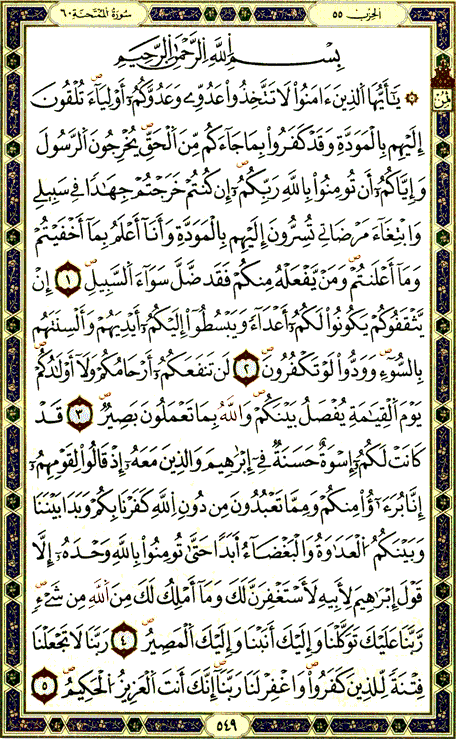 الحِزب ٥٥
سُورَةُ المُمْتَحِنَةِ ٦٠
ثمن
بِسْمِ اِللَّهِ اِلرَّحْمَٰنِ اِلرَّحِيمِ
يَٰٓأَيُّهَا اَلذِينَ ءَامَنُواْ لَا تَتَّخِذُواْ عَدُوِّے وَعَدُوَّكُمُۥٓ أَوْلِيَآءَ تُلْقُونَ
إِلَيْهِم بِالْمَوَدَّةِ وَقَدْ كَفَرُواْ بِمَا جَآءَكُم مِّنَ اَلْحَقِّ يُخْرِجُونَ اَلرَّسُولَ
وَإِيَّاكُمُۥٓ أَن تُومِنُواْ بِاللَّهِ رَبِّكُمُۥٓ إِن كُنتُمْ خَرَجْتُمْ جِهَٰدٗا فِے سَبِيلِے
وَابْتِغَآءَ مَرْضَاتِے تُسِرُّونَ إِلَيْهِم بِالْمَوَدَّةِ وَأَنَآ أَعْلَمُ بِمَآ أَخْفَيْتُمْ
وَمَآ أَعْلَنتُمْ وَمَنْ يَّفْعَلْهُ مِنكُمْ فَقَد ضَّلَّ سَوَآءَ اَلسَّبِيلِ ١ إِنْ
يَّثْقَفُوكُمْ يَكُونُواْ لَكُمُۥٓ أَعْدَآءٗ وَيَبْسُطُوٓاْ إِلَيْكُمُۥٓ أَيْدِيَهُمْ وَأَلْسِنَتَهُم
بِالسُّوٓءِ وَوَدُّواْ لَوْ تَكْفُرُونَ ٢ لَن تَنفَعَكُمُۥٓ أَرْحَامُكُمْ وَلَآ أَوْلَٰدُكُمْ
يَوْمَ اَلْقِيَٰمَةِ يُفْصَلُ بَيْنَكُمْ وَاللَّهُ بِمَا تَعْمَلُونَ بَصِيرٞ ٣ قَدْ
كَانَتْ لَكُمُۥٓ إِسْوَةٌ حَسَنَةٞ فِےٓ إِبْرَٰهِيمَ وَالذِينَ مَعَهُۥٓ إِذْ قَالُواْ لِقَوْمِهِمُۥٓ
إِنَّا بُرَءَٰٓؤُاْ مِنكُمْ وَمِمَّا تَعْبُدُونَ مِن دُونِ اِللَّهِ كَفَرْنَا بِكُمْ وَبَدَا بَيْنَنَا
وَبَيْنَكُمُ اُلْعَدَٰوَةُ وَالْبَغْضَآءُ اَبَدًا حَتَّىٰ تُومِنُواْ بِاللَّهِ وَحْدَهُۥٓ إِلَّا
قَوْلَ إِبْرَٰهِيمَ لِأَبِيهِ لَأَسْتَغْفِرَنَّ لَكَ وَمَآ أَمْلِكُ لَكَ مِنَ اَللَّهِ مِن شَےْءٖ
رَّبَّنَا عَلَيْكَ تَوَكَّلْنَا وَإِلَيْكَ أَنَبْنَا وَإِلَيْكَ اَلْمَصِيرُ ٤ رَبَّنَا لَا تَجْعَلْنَا
فِتْنَةٗ لِّلذِينَ كَفَرُواْ وَاغْفِرْ لَنَا رَبَّنَآ إِنَّكَ أَنتَ اَلْعَزِيزُ اُلْحَكِيمُ ٥
٥٤٩